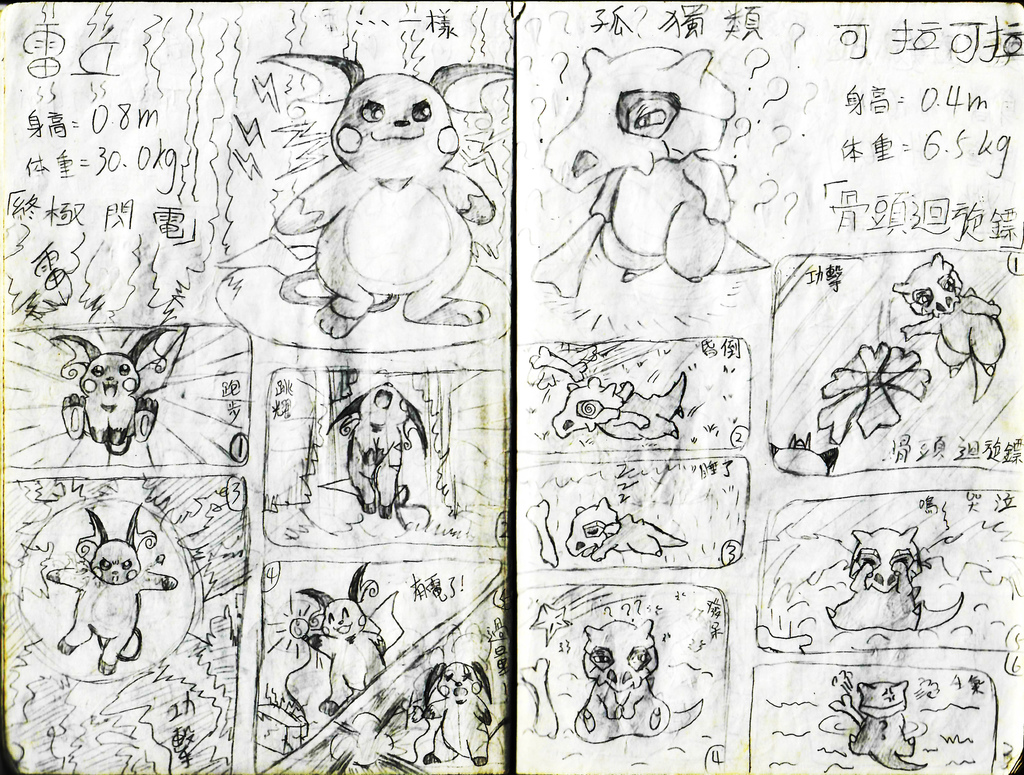 雷丘
身高=0.8m
体重=30.0kg
「終極閃電」
…一樣
雷
跑步
①
跳
③
功擊
④
有電了!
過
孤?獨類
可拉可拉
身高=0.4m
体重=6.5kg
「骨頭迴旋鏢」
功擊
①
骨頭迴旋鏢
昏倒
②
睡了
zzz
③
發呆
???
④
嗚
哭泣
生氣